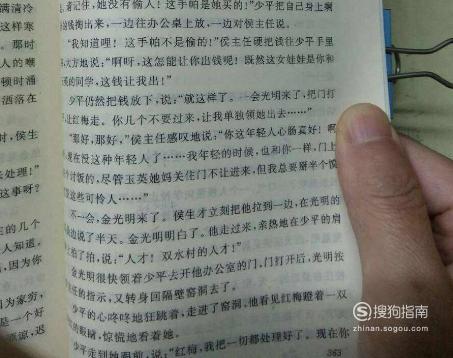 满清冷
这样寒
那时
人的嘲
顿时涌
洒落在
时，侯生
去处理！”
这事呀？
的几个
人知道。
因为你
因为家穷，
是一个好
原谅，迟
着记住，她没有偷人！这手帕是她买的！”少平把自己身上剩
的钱掏出来，一边往办公桌上放，一边对侯主任说。
“我知道哩！这手帕不是偷的！”侯主任硬把钱往少平手里
大方地说；“啊呀，这怎能让你出钱呢！既然这女娃娃是你和
的同学，这钱让我出！”
少平仍然把钱放下，说：“就这样了。一会光明来了，把门打
让红梅走。你几个不要过来，让我单独领她出去……”
“那好，那好，”侯主任感叹地说：“你这年轻人心肠真好！啊
现在没这种年轻人了……我年轻的时候，也和你一样，门上
个讨饭的，尽管玉英她妈关住门不让进来，但我总要掰半个馍
这些可怜人……”
不一会，金光明来了。侯生才立刻把他拉到一边，在光明的
边说了半天。金光明明白了。他走过来，亲热地在少平的肩
拍了拍，说：“人才！双水村的人才！”
金光明很快领着少平去开他办公室的门，门打开后，光明按
主任的指示，又转身回隔壁窑洞去了。
少平的心咚咚地狂跳着，走进了窑洞。他看见红梅瞪着一双
的眼睛，惊慌地看着她。
少平走到她跟前，说：“红梅，我把一切都处理好了。现在你
363
搜狗指南
zhinan.sogou.com